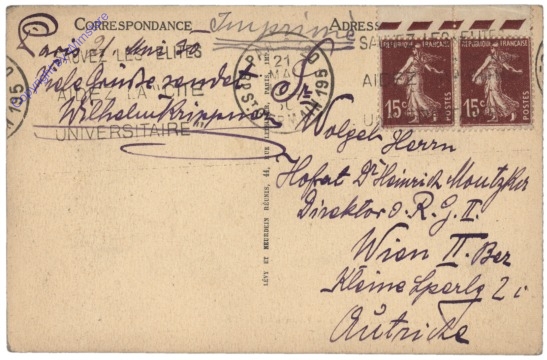 CORRESPONDANCE
Imprimé
ADRESSE
Paris
SAUVEZ LES ELITES
Viele Grüße sendet
AIDEZ LA CITE
Wilhelm Krippner
UNIVERSITAIRE
21
MAI
Sr.
Wolgeb Herrn
Hofrat Dr Heinrich Montzka
Direktor d. R. G. II.
Wien II. Bez
Kleine Sperlg 2 c
Autriche
LÉVY ET NEURDEIN RÉUNIS, 44, RUE LETELLIER, PARIS
RÉPUBLIQUE FRANÇAISE
15c
POSTES
RÉPUBLIQUE FRANÇAISE
15c
POSTES